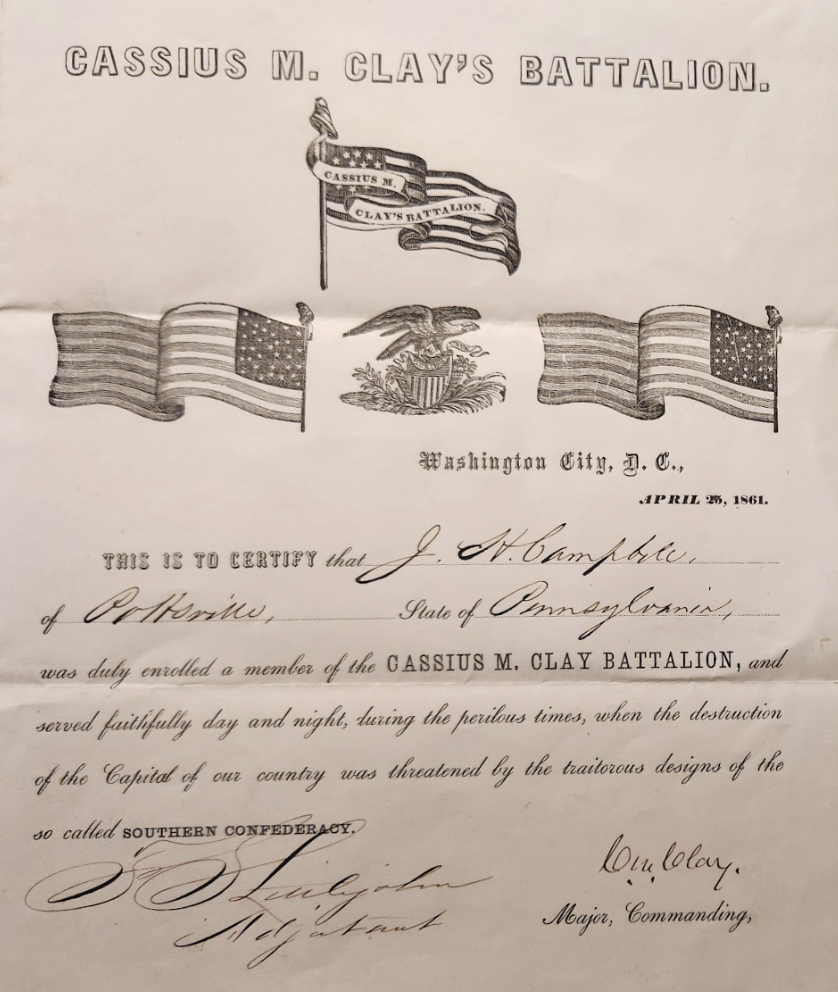 CASSIUS M. CLAY'S BATTALION.
CASSIUS M.
CLAY'S BATTALION.
Washington City, D. C.,
APRIL 25, 1861.
THIS IS TO CERTIFY that J. H. Campbell,
of Pottsville, State of Pennsylvania,
was duly enrolled a member of the CASSIUS M. CLAY BATTALION, and
served faithfully day and night, during the perilous times, when the destruction
of the Capital of our country was threatened by the traitorous designs of the
so called SOUTHERN CONFEDERACY.
Littlejohn
C. M. Clay.
Adjutant
Major, Commanding,